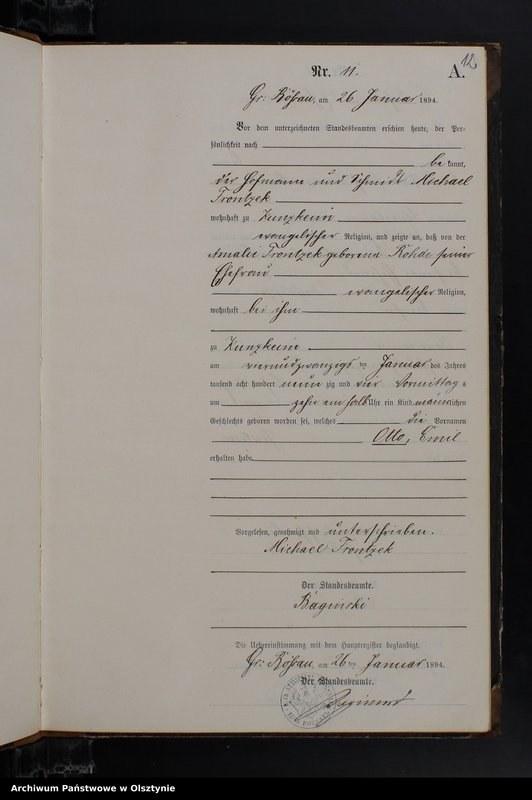 12
Nr. 11.
A.
Gr. Rößau, am 26 Januar 1894.
Vor dem unterzeichneten Standesbeamten erschien heute, der Per-
sönlichkeit nach
be kannt,
der Hofmann und Schmidt Michael
Trontzek
wohnhaft zu Kunzkeim
evangelischer Religion, und zeigte an, daß von der
Amalie Trontzek geborene Rohde seiner
Ehefrau
evangelischer Religion,
wohnhaft bei ihm
zu Kunzkeim
am vierundzwanzigs ten Januar des Jahres
tausend acht hundert neun zig und vier Vormittag s
um zehn ein halb Uhr ein Kind männlichen
Geschlechts geboren worden sei, welches die Vornamen
Otto, Emil
erhalten habe
Vorgelesen, genehmigt und unterschrieben.
Michael Trontzek
Der Standesbeamte.
Baginski
Die Uebereinstimmung mit dem Hauptregister beglaubigt.
Gr. Rößau, am 26 ten Januar 1894.
Der Standesbeamte.
Baginski
Archiwum Państwowe w Olsztynie